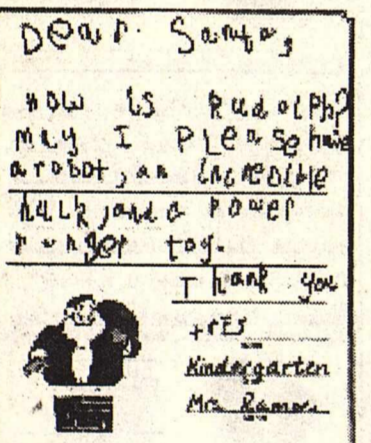 Dear Santa,
How is Rudolph?
may I Please have
a robot, an increbible
hulk, and a power
ranger toy.
Thank you
Kindergarten
Mrs. Ramos